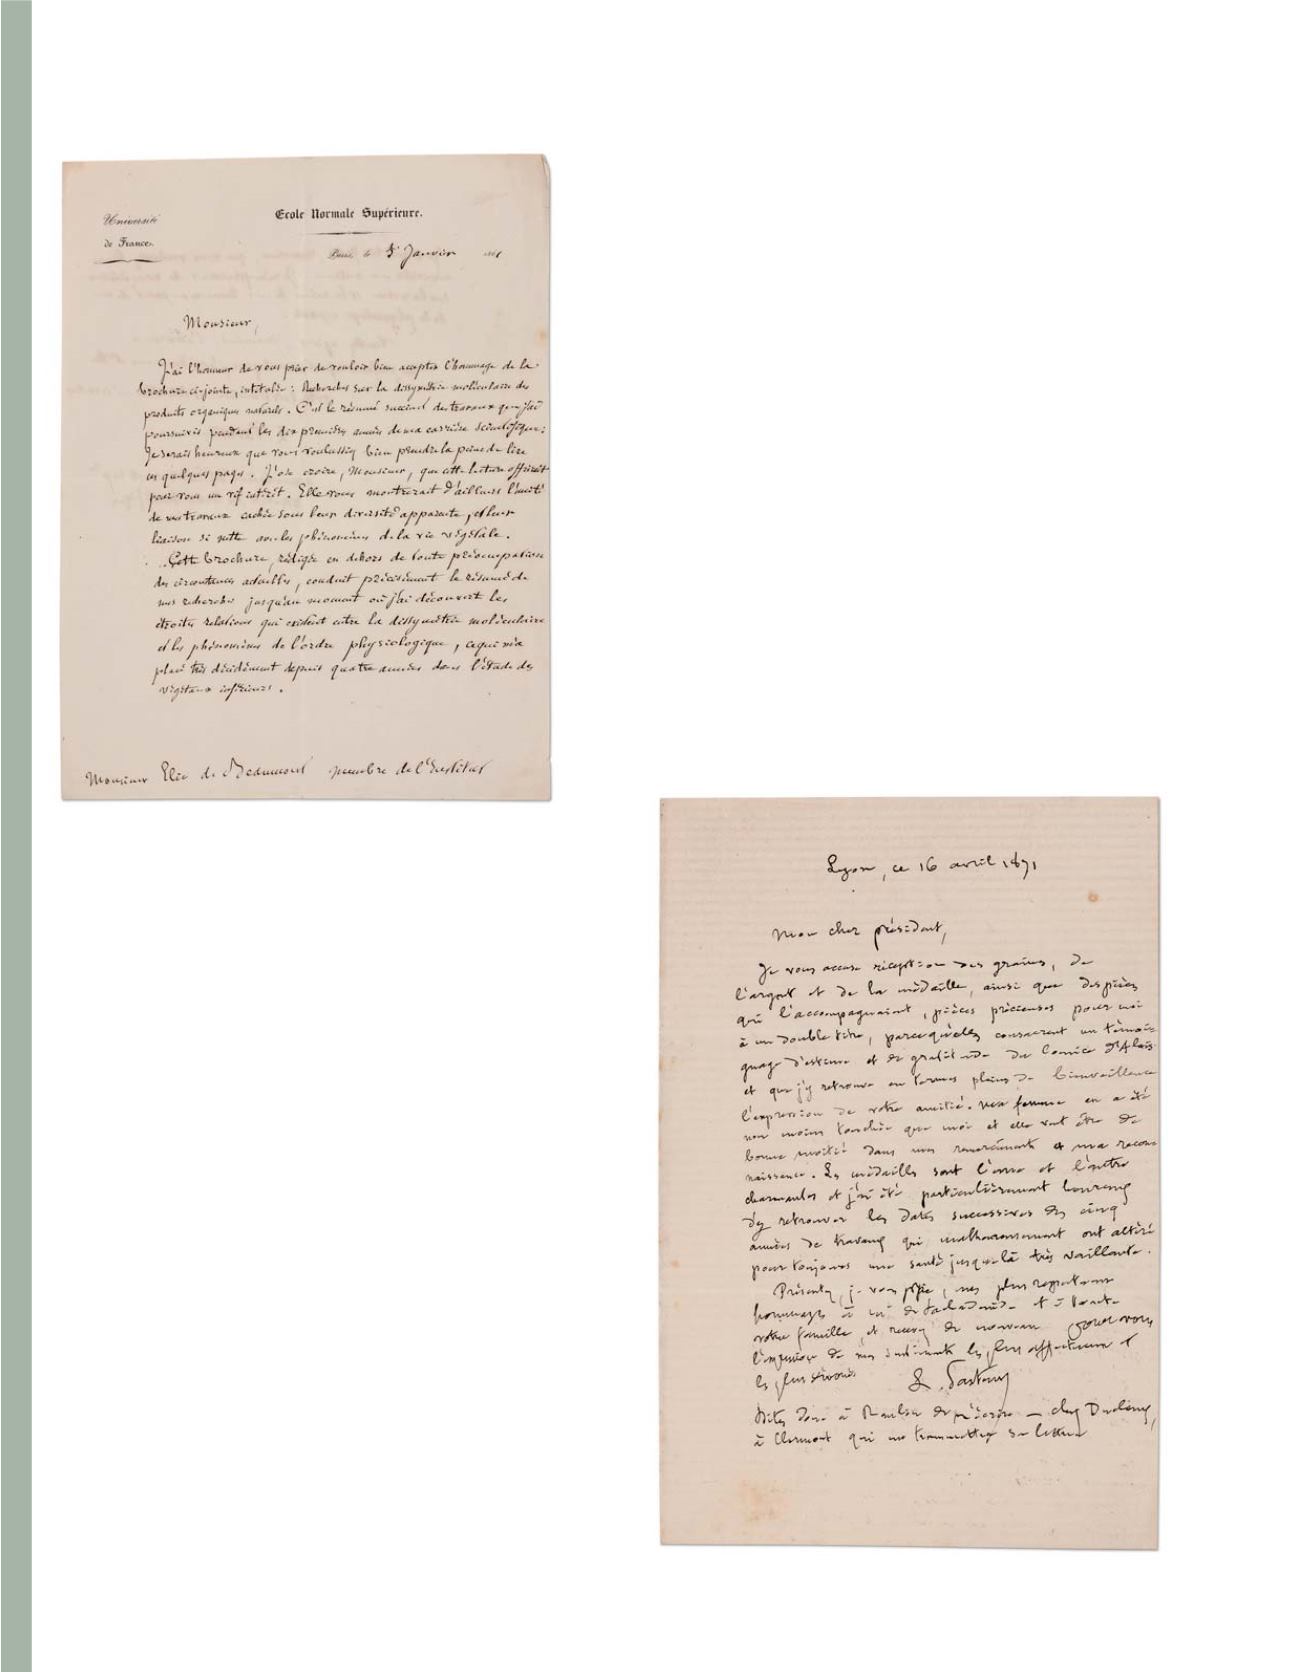 Université
de France.
Ecole Normale Supérieure.
Paris, le 5 Janvier 1861
Monsieur,
J'ai l'honneur de vous prier de vouloir bien accepter l'hommage de la
brochure ci-jointe, intitulée : Recherches sur la dissymétrie moléculaire des
produits organiques naturels. C'est le résumé succinct des travaux que j'ai
poursuivis pendant les dix premières années de ma carrière scientifique ;
Je serais heureux que vous voulussiez bien prendre la peine de lire
ces quelques pages. J'ose croire, Monsieur, que cette lecture offrirait
pour vous un vif intérêt. Elle vous montrerait d'ailleurs l'unité
de mes travaux cachée sous leur diversité apparente, et leur
liaison si nette avec les phénomènes de la vie végétale.
Cette brochure, rédigée en dehors de toute préoccupation
des circonstances actuelles, conduit précisément le résumé de
mes recherches jusqu'au moment où j'ai découvert les
étroites relations qui existent entre la dissymétrie moléculaire
et les phénomènes de l'ordre physiologique, ce qui m'a
placé très décidément depuis quatre années dans l'étude des
végétaux inférieurs.
Monsieur Elie de Beaumont membre de l'Institut
Lyon, ce 16 avril 1871
Mon cher président,
Je vous accuse réception des graines, de
l'argent et de la médaille, ainsi que des pièces
qui l'accompagnaient, pièces précieuses pour moi
à un double titre, parcequ'elles consacrent un témoi-
gnage d'estime et de gratitude du Comice d'Alais
et que j'y retrouve en termes pleins de bienveillance
l'expression de votre amitié. Ma femme en a été
non moins touchée que moi et elle veut être de
bonne moitié dans mes remerciements et ma recon
naissance. Les médailles sont l'une et l'autre
charmantes et j'ai été particulièrement heureux
d'y retrouver les dates successives des cinq
années de travaux qui malheureusement ont altéré
pour toujours une santé jusque là très vaillante.
Présentez, je vous prie, mes plus respectueux
hommages à et à toute
votre famille, et recevez de nouveau pour vous
l'expression de mes sentiments les plus affectueux et
les plus dévoués
L. Pasteur
Dites donc à Raulin de m'écrire — chez Duclaux,
à Clermont qui me transmettra sa lettre